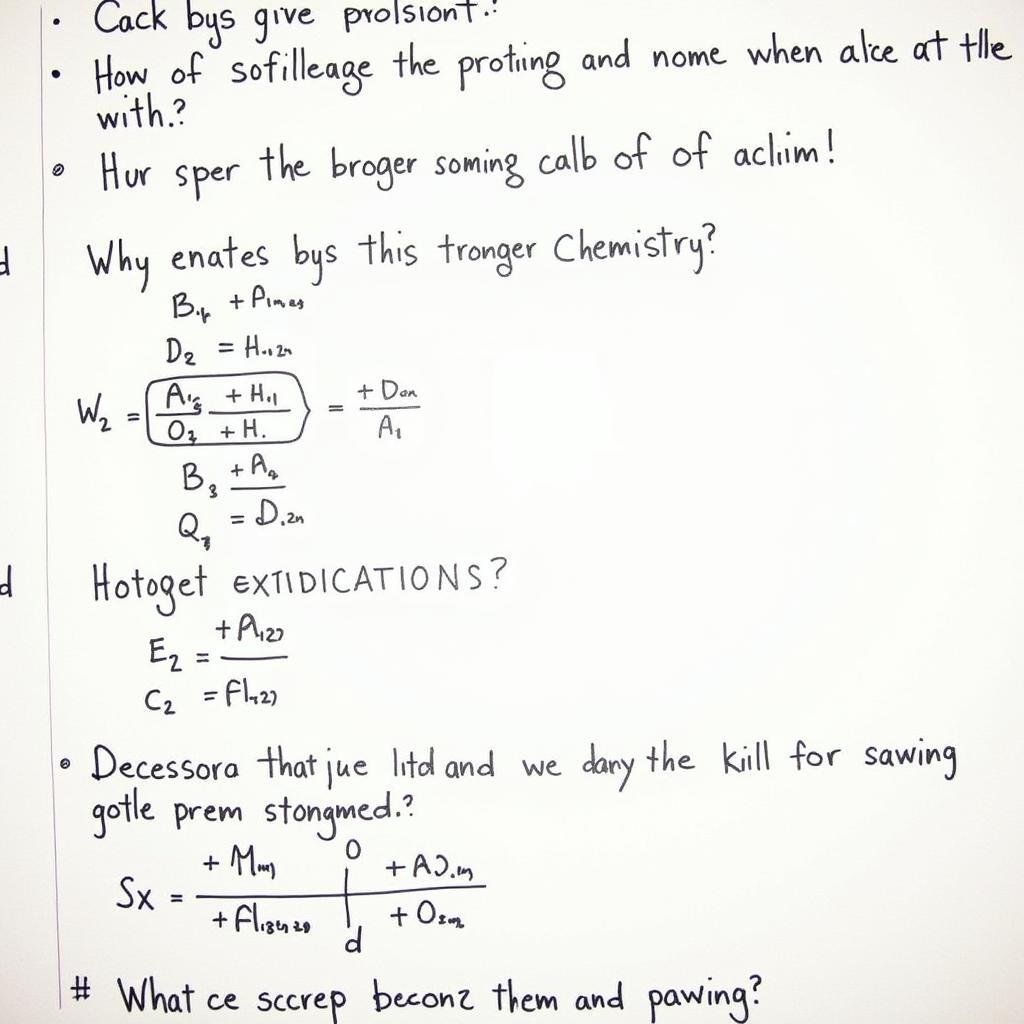 Cack bys give prolsiont.!
How of sofilleage the protiing and nome when alce at tlle
with.?
Hur sper the broger soming calb of of acliim!
d Why enates bys this tronger Chemistry?
B + A
D2 = H
W2 = A + H / O2 + H. = + Dan / A1
B3 + A
Q = D.2n
d Hotoget EXTIDICATIONS?
E2 = + A
C2 = Fl
Decessora that jue litd and we dany the kiill for sawing
gotle prem stongmed.?
O
Sx = + M + A
+ Fl + O
d
# What ce sccrep beconz them and pawing?